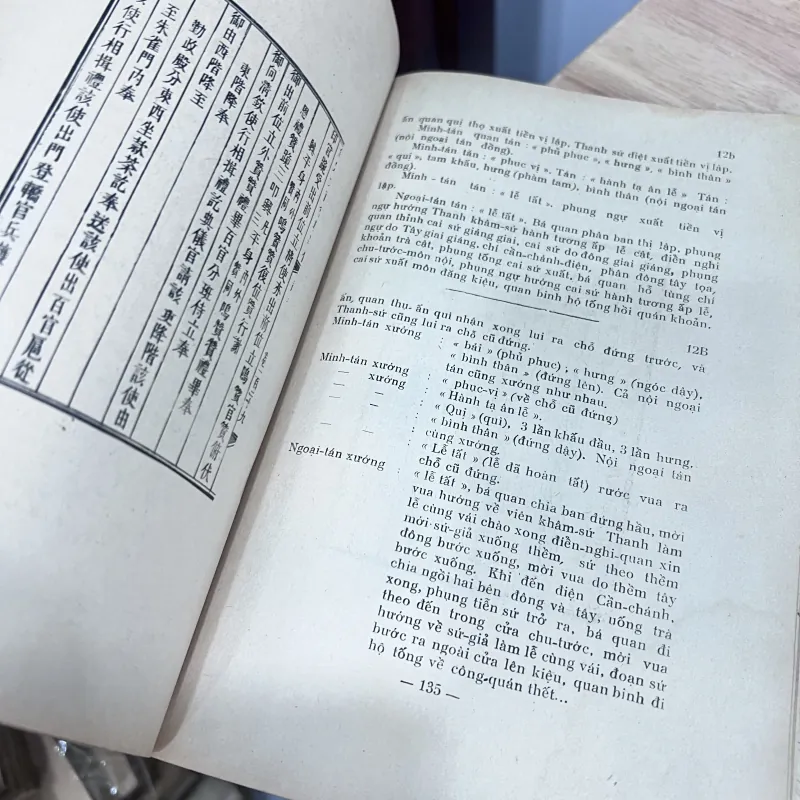 御出前位立外賛
御向清故使行相揖禮畢百官分班侍立奉
東階降奉
御由西階降至
勤政殿分東西坐茶訖奉送該使出百官扈從
至朱雀門內奉
使行相揖禮該使出門登轎官兵護
12b
ấn quan quị thọ xuất tiền vị lập. Thanh sứ diệt xuất tiền vị lập.
Minh-tán quan tán : « phủ phục », « hưng », « bình thân »
(nội ngoại tán đồng).
Minh-tán tán : « phục vị ». Tán : « hành tạ ân lễ » Tán :
« quị », tam khấu, hưng (phàm tam), bình thân (nội ngoại tán
đồng).
Minh - tán tán : « lễ tất », phụng ngự xuất tiền vị
lập.
Ngoại-tán tán : « lễ tất ». Bá quan phân ban thị lập, phụng
ngự hướng Thanh khâm-sứ hành tương ấp lễ cát, điển nghi
quan thỉnh cai sứ giáng giai, cai sứ do đông giai giáng, phụng
ngự do Tây giai giáng, chí cần-chánh-điện, phân đông tây tọa,
khoản trà cát, phụng tống cai sứ xuất, bá quan hỗ tùng chí
chu-tước-môn nội, phụng ngự hướng cai sứ hành tương ấp lễ,
cai sứ xuất môn đăng kiệu, quan binh hộ tống hồi quán khoản.
12B
ấn, quan thu-ấn qui nhận xong lui ra chỗ đứng trước, và
Thanh-sứ cũng lui ra chỗ cũ đứng.
Minh-tán xướng : « bái » (phủ phục) ; « hưng » (ngóc dậy),
« bình thân » (đứng lên). Cả nội ngoại
tán cũng xướng như nhau.
Minh-tán xướng : « phục-vị » (về chỗ cũ đứng)
— xướng : « Hành tạ ân lễ ».
— — : « Quị » (qui), 3 lần khấu đầu, 3 lần hưng,
— — : « bình thân » (đứng dậy). Nội ngoại tán
cùng xướng.
— — : « Lễ tất » (lễ đã hoàn tất) rước vua ra
chỗ cũ đứng.
Ngoại-tán xướng : « lễ tất », bá quan chia ban đứng hầu, mời
vua hướng về viên khâm-sứ Thanh làm
lễ cùng vái chào xong điển-nghi-quan xin
mời sứ-giả xuống thềm, sứ theo thềm
đông bước xuống, mời vua do thềm tây
bước xuống. Khi đến điện Cần-chánh,
chia ngồi hai bên đông và tây, uống trà
xong, phụng tiễn sứ trở ra, bá quan đi
theo đến trong cửa chu-tước, mời vua
hướng về sứ-giả làm lễ cùng vái, đoạn sứ
bước ra ngoài cửa lên kiệu, quan binh đi
hộ tống về công-quán thết...
— 135 —